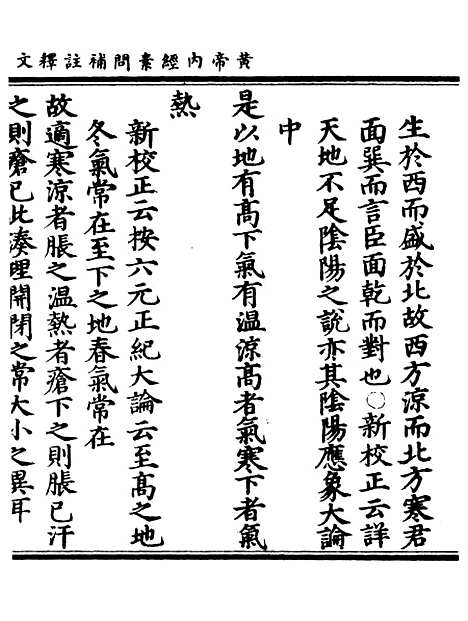 黃帝內經素問補註釋文
生於西而盛於北故西方涼而北方寒君
面巽而言臣面乾而對也○新校正云詳
天地不足陰陽之說亦其陰陽應象大論
中
是以地有髙下氣有温涼髙者氣寒下者氣
熱
新校正云按六元正紀大論云至髙之地
冬氣常在至下之地春氣常在
故適寒涼者脹之温熱者瘡下之則脹已汗
之則瘡已此湊理開閉之常大小之異耳